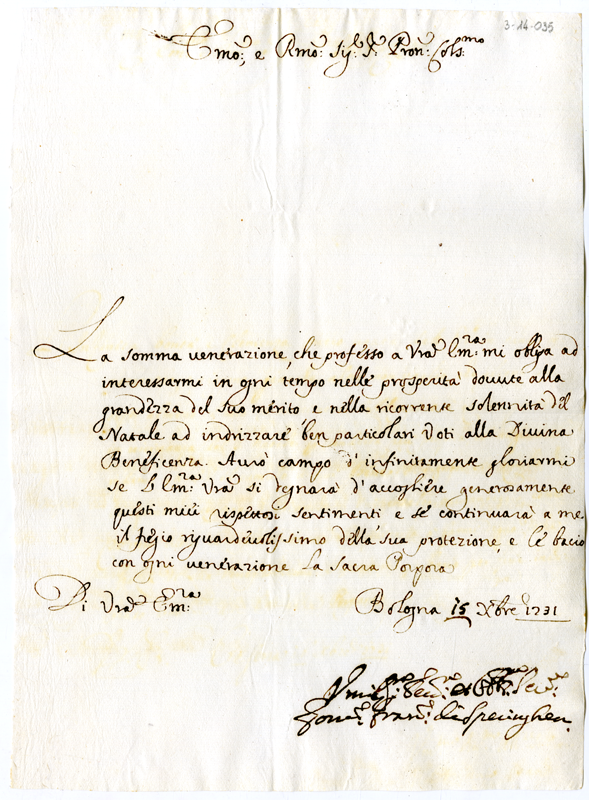 3-14-035
Emo: e Rmo: Sig.r P.: Pron: Colmo
La somma venerazione, che professo a Vra Em:ra mi obliga ad
interessarmi in ogni tempo nelle prosperità dovute alla
grandezza del suo merito e nella ricorrente solennità del
Natale ad indrizzare ben particolari Voti alla Divina
Beneficenza. Avrò campo d'infinitamente gloriarmi
se l'Em:ra Vra si degnarà d'accogliere generosamente
questi miei rispettosi sentimenti e se continuarà a me
il fregio riguardevolissimo della sua protezione, e le bacio
con ogni venerazione la Sacra Porpora
Di Vra Em:ra
Bologna 15 Xbre 1731